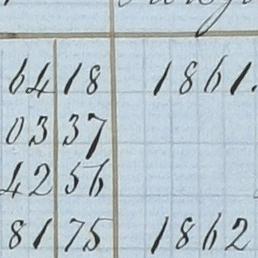 64 18 1861.
03 37
42 56
81 75 1862